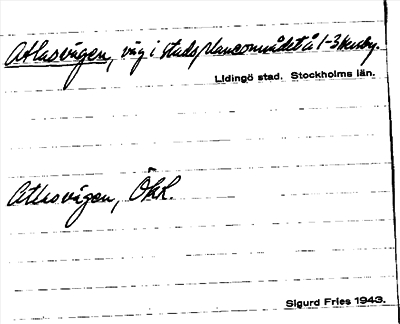 Atlasvägen, väg i stadsplaneområdet å 1-3 Hersby.
Lidingö stad. Stockholms län.
Atlasvägen, ÖKK.
Sigurd Fries 1943.